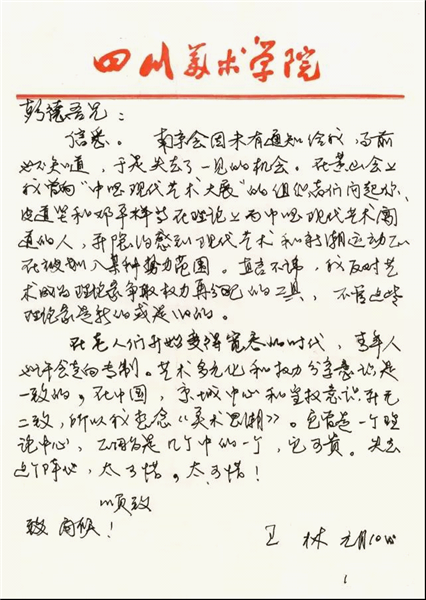 四川美术学院
彭德吾兄：
信悉。南京会因未有通知给我，事前
也不知道，于是失去了一见的机会。在黄山会上
我曾向“中国现代艺术大展”的组织者们问起你、
皮道坚和邓平祥等在理论上为中国现代艺术闯
道的人，并隐约感到现代艺术和新潮运动正
在被划入某种势力范围。直言不讳，我反对艺
术成为理论家争取权力再分配的工具，不管这些
理论家是新的或是旧的。
在老人们开始变得宽容的时代，青年人
也许会走向专制。艺术多元化和权力分享意识是
一致的，在中国，京城中心和当权意识并无
二致，所以我怀念《美术思潮》。它曾是一个理
论中心，正因为是几个中的一个，它可贵。失去
这个阵地，太可惜。太可惜！
顺致
问候！
王林 元月10日
1